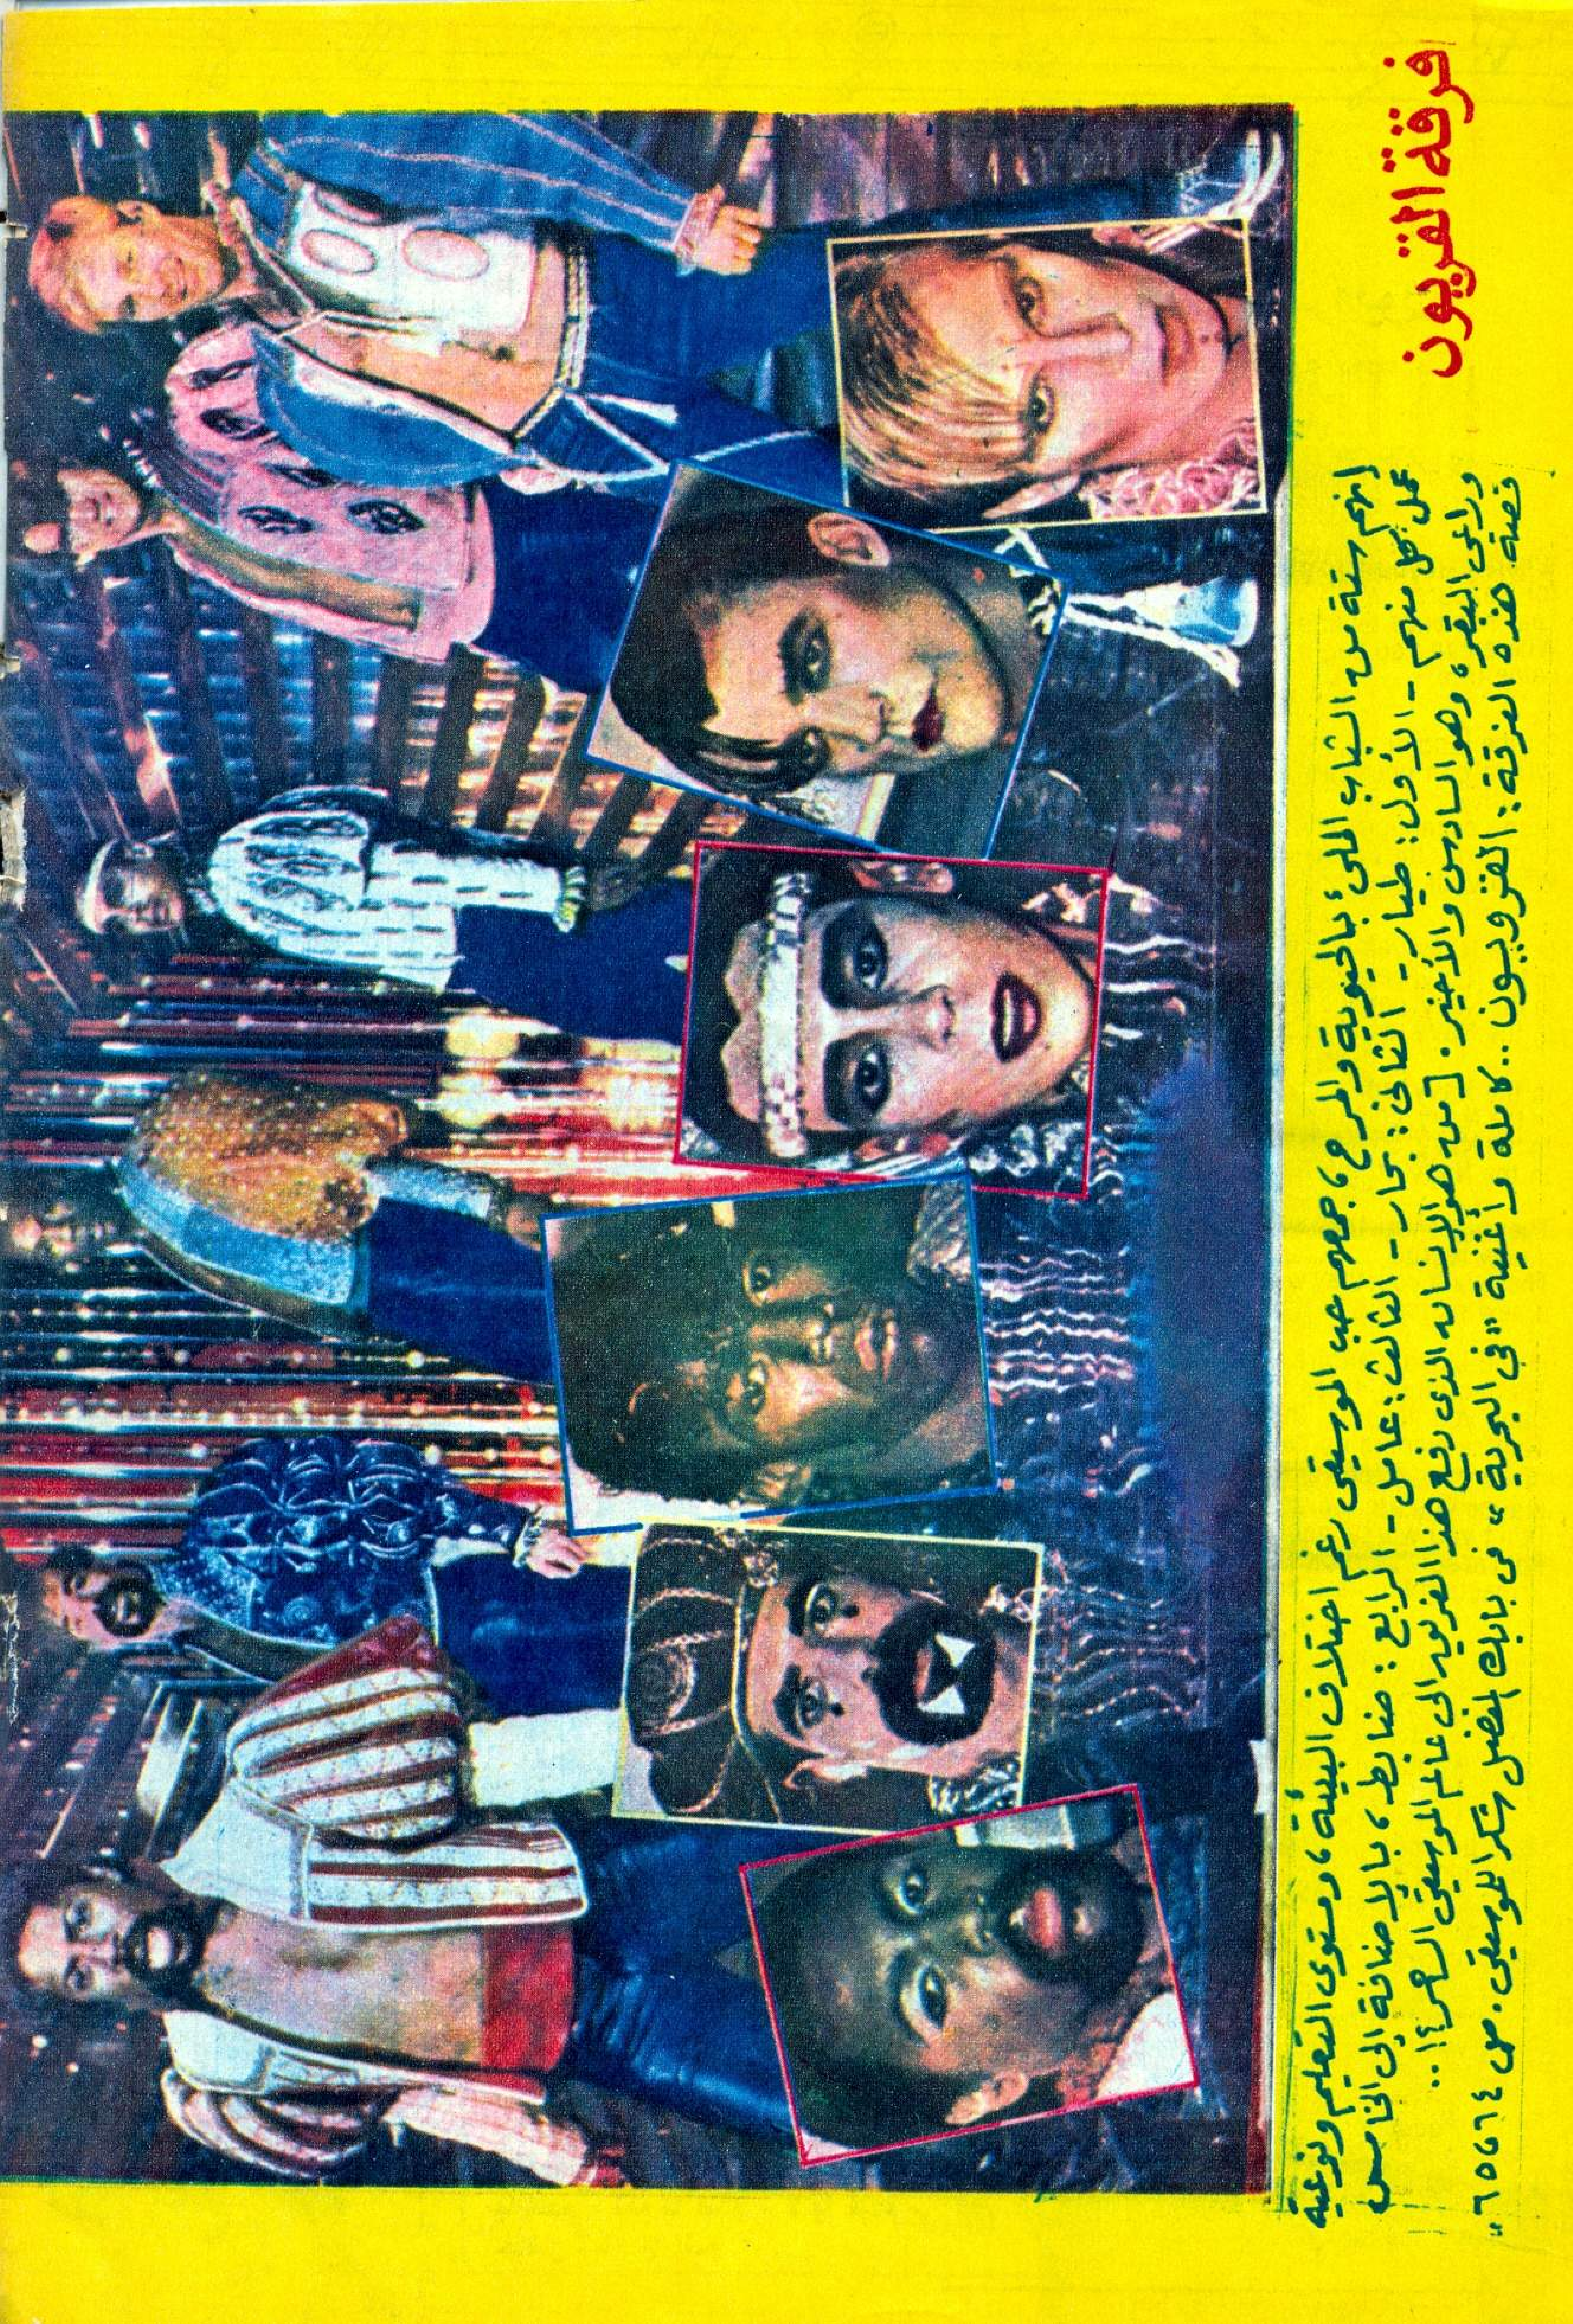 فرقة القريون
إنهم ستة من الشباب الملئ بالحيوية والمرح، جمعهم حب الموسيقى رغم اختلاف البيئة، ومستوى التعليم ونوعية
عمل كل منهم - الأول: طيار - الثاني: بحار - الثالث: عامل - الرابع: ضابط، بالإضافة إلى الخامس
وراعى البقر، وهو السادس والأخير. [من هو الإنسان الذى دفع هذا الفريق إلى عالم الموسيقى الساحر؟!..
قصة هذه الفرقة: القرويون.. كاملة وأغنية "في البحرية" فى بابك المفضل شكرا للموسيقى. ص ٦٤، ٦٥"